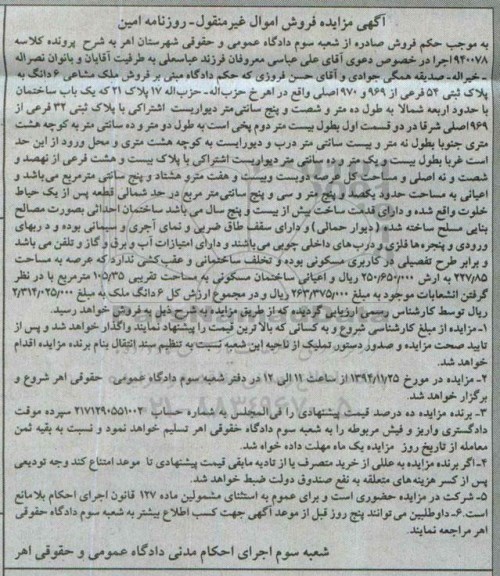 آگهی مزایده فروش اموال غیرمنقول - روزنامه امین
به موجب حکم فروش صادره از شعبه سوم دادگاه عمومی و حقوقی شهرستان اهر به شرح پرونده کلاسه
۹۴۰۰۷۸ اجرا در خصوص دعوی آقای علی عباسی معروفان فرزند عباسعلی به طرفیت آقایان و بانوان نصراله
- خیراله - صدیقه همگی جوادی و آقای حسن فروزی که حکم دادگاه مبنی بر فروش ملک مشاعی ۶ دانگ به
پلاک ثبتی ۵۴ فرعی از ۹۶۹ و ۹۷۰ اصلی واقع در اهر خ حزب‌اله - حزب‌اله ۱۷ پلاک ۲۱ که یک باب ساختمان
با حدود اربعه شمالا به طول ده متر و شصت و پنج سانتی‌متر دیواریست اشتراکی با پلاک ثبتی ۳۲ فرعی از
۹۶۹ اصلی شرقا در دو قسمت اول بطول بیست متر دوم پخی است به طول دو متر و ده سانتی متر به کوچه هشت
متری جنوبا بطول نه متر و بیست سانتی متر درب و دیواریست به کوچه هشت متری و محل ورود از این حد
است غربا بطول بیست و یک متر و ده سانتی متر دیواریست اشتراکی با پلاک بیست و هشت فرعی از نهصد و
شصت و نه اصلی و مساحت کل عرصه دویست وبیست و هفت مترو هشتاد و پنج سانتی مترمربع می‌باشد و
اعیانی به مساحت حدود یکصد و پنج متر و سی و پنج سانتی‌متر مربع در حد شمالی قطعه پس از یک حیاط
خلوت واقع شده و دارای قدمت ساخت بیش از بیست و پنج سال می باشد ساختمان احداثی بصورت مصالح
بنایی مسلح ساخته شده ( دیوار حمالی ) و دارای سقف طاق ضربی و نمای آجری و سیمانی بوده و دربهای
ورودی و پنجره ها فلزی و درب‌های داخلی چوبی می‌باشند و دارای امتیازات آب و برق و گاز و تلفن می باشد
و برابر طرح تفصیلی در کاربری مسکونی بوده و تخلف ساختمانی و عقب‌کشی ندارد که عرصه به مساحت
۲۲۷/۸۵ به ارش ۲۵۰/۶۵۰/۰۰۰ ریال و اعیانی ساختمان مسکونی به مساحت تقریبی ۱۰۵/۳۵ مترمربع با در نظر
گرفتن انشعابات موجود به مبلغ ۲۶۳/۳۷۵/۰۰۰ ریال و در مجموع ارزش کل ۶ دانگ ملک به مبلغ ۲/۳۱۴/۰۲۵/۰۰۰
ریال توسط کارشناس رسمی ارزیابی گردیده که از طریق مزایده به شرح ذیل به فروش خواهد رسید.
۱- مزایده از مبلغ کارشناسی شروع و به کسانی که بالا ترین قیمت را پیشنهاد نمایند واگذار خواهد شد و پس از
تایید صحت مزایده و صدور دستور تملیک از ناحیه این شعبه نسبت به تنظیم سند انتقال بنام برنده مزایده اقدام
خواهد شد.
۲- مزایده در مورخ ۱۳۹۴/۱۱/۲۵ از ساعت ۱۱ الی ۱۲ در دفتر شعبه سوم دادگاه عمومی حقوقی اهر شروع و
برگزار خواهد شد.
۳- برنده مزایده ده درصد قیمت پیشنهادی را فی‌المجلس به شماره حساب ۲۱۷۱۲۹۰۵۵۱۰۰۲ سپرده موقت
دادگستری واریز و فیش مربوطه را به شعبه سوم دادگاه حقوقی اهر تسلیم خواهد نمود و نسبت به بقیه ثمن
معامله از تاریخ روز مزایده یک ماه مهلت داده خواه شد.
۴- اگر برنده مزایده به عللی از خرید متصرف یا از تادیه مابقی قیمت پیشنهادی تا موعد امتناع کند وجه تودیعی
پس از کسر هزینه‌های متعلقه به نفع صندوق دولت ضبط خواهد شد.
۵- شرکت در مزایده حضوری است و برای عموم به استثنای مشمولین ماده ۱۲۷ قانون اجرای احکام بلامانع
است. ۶- داوطلبین می توانند پنج روز قبل از موعد آگهی جهت کسب اطلاع بیشتر به شعبه سوم دادگاه حقوقی
اهر مراجعه نمایند.
شعبه سوم اجرای احکام مدنی دادگاه عمومی و حقوقی اهر